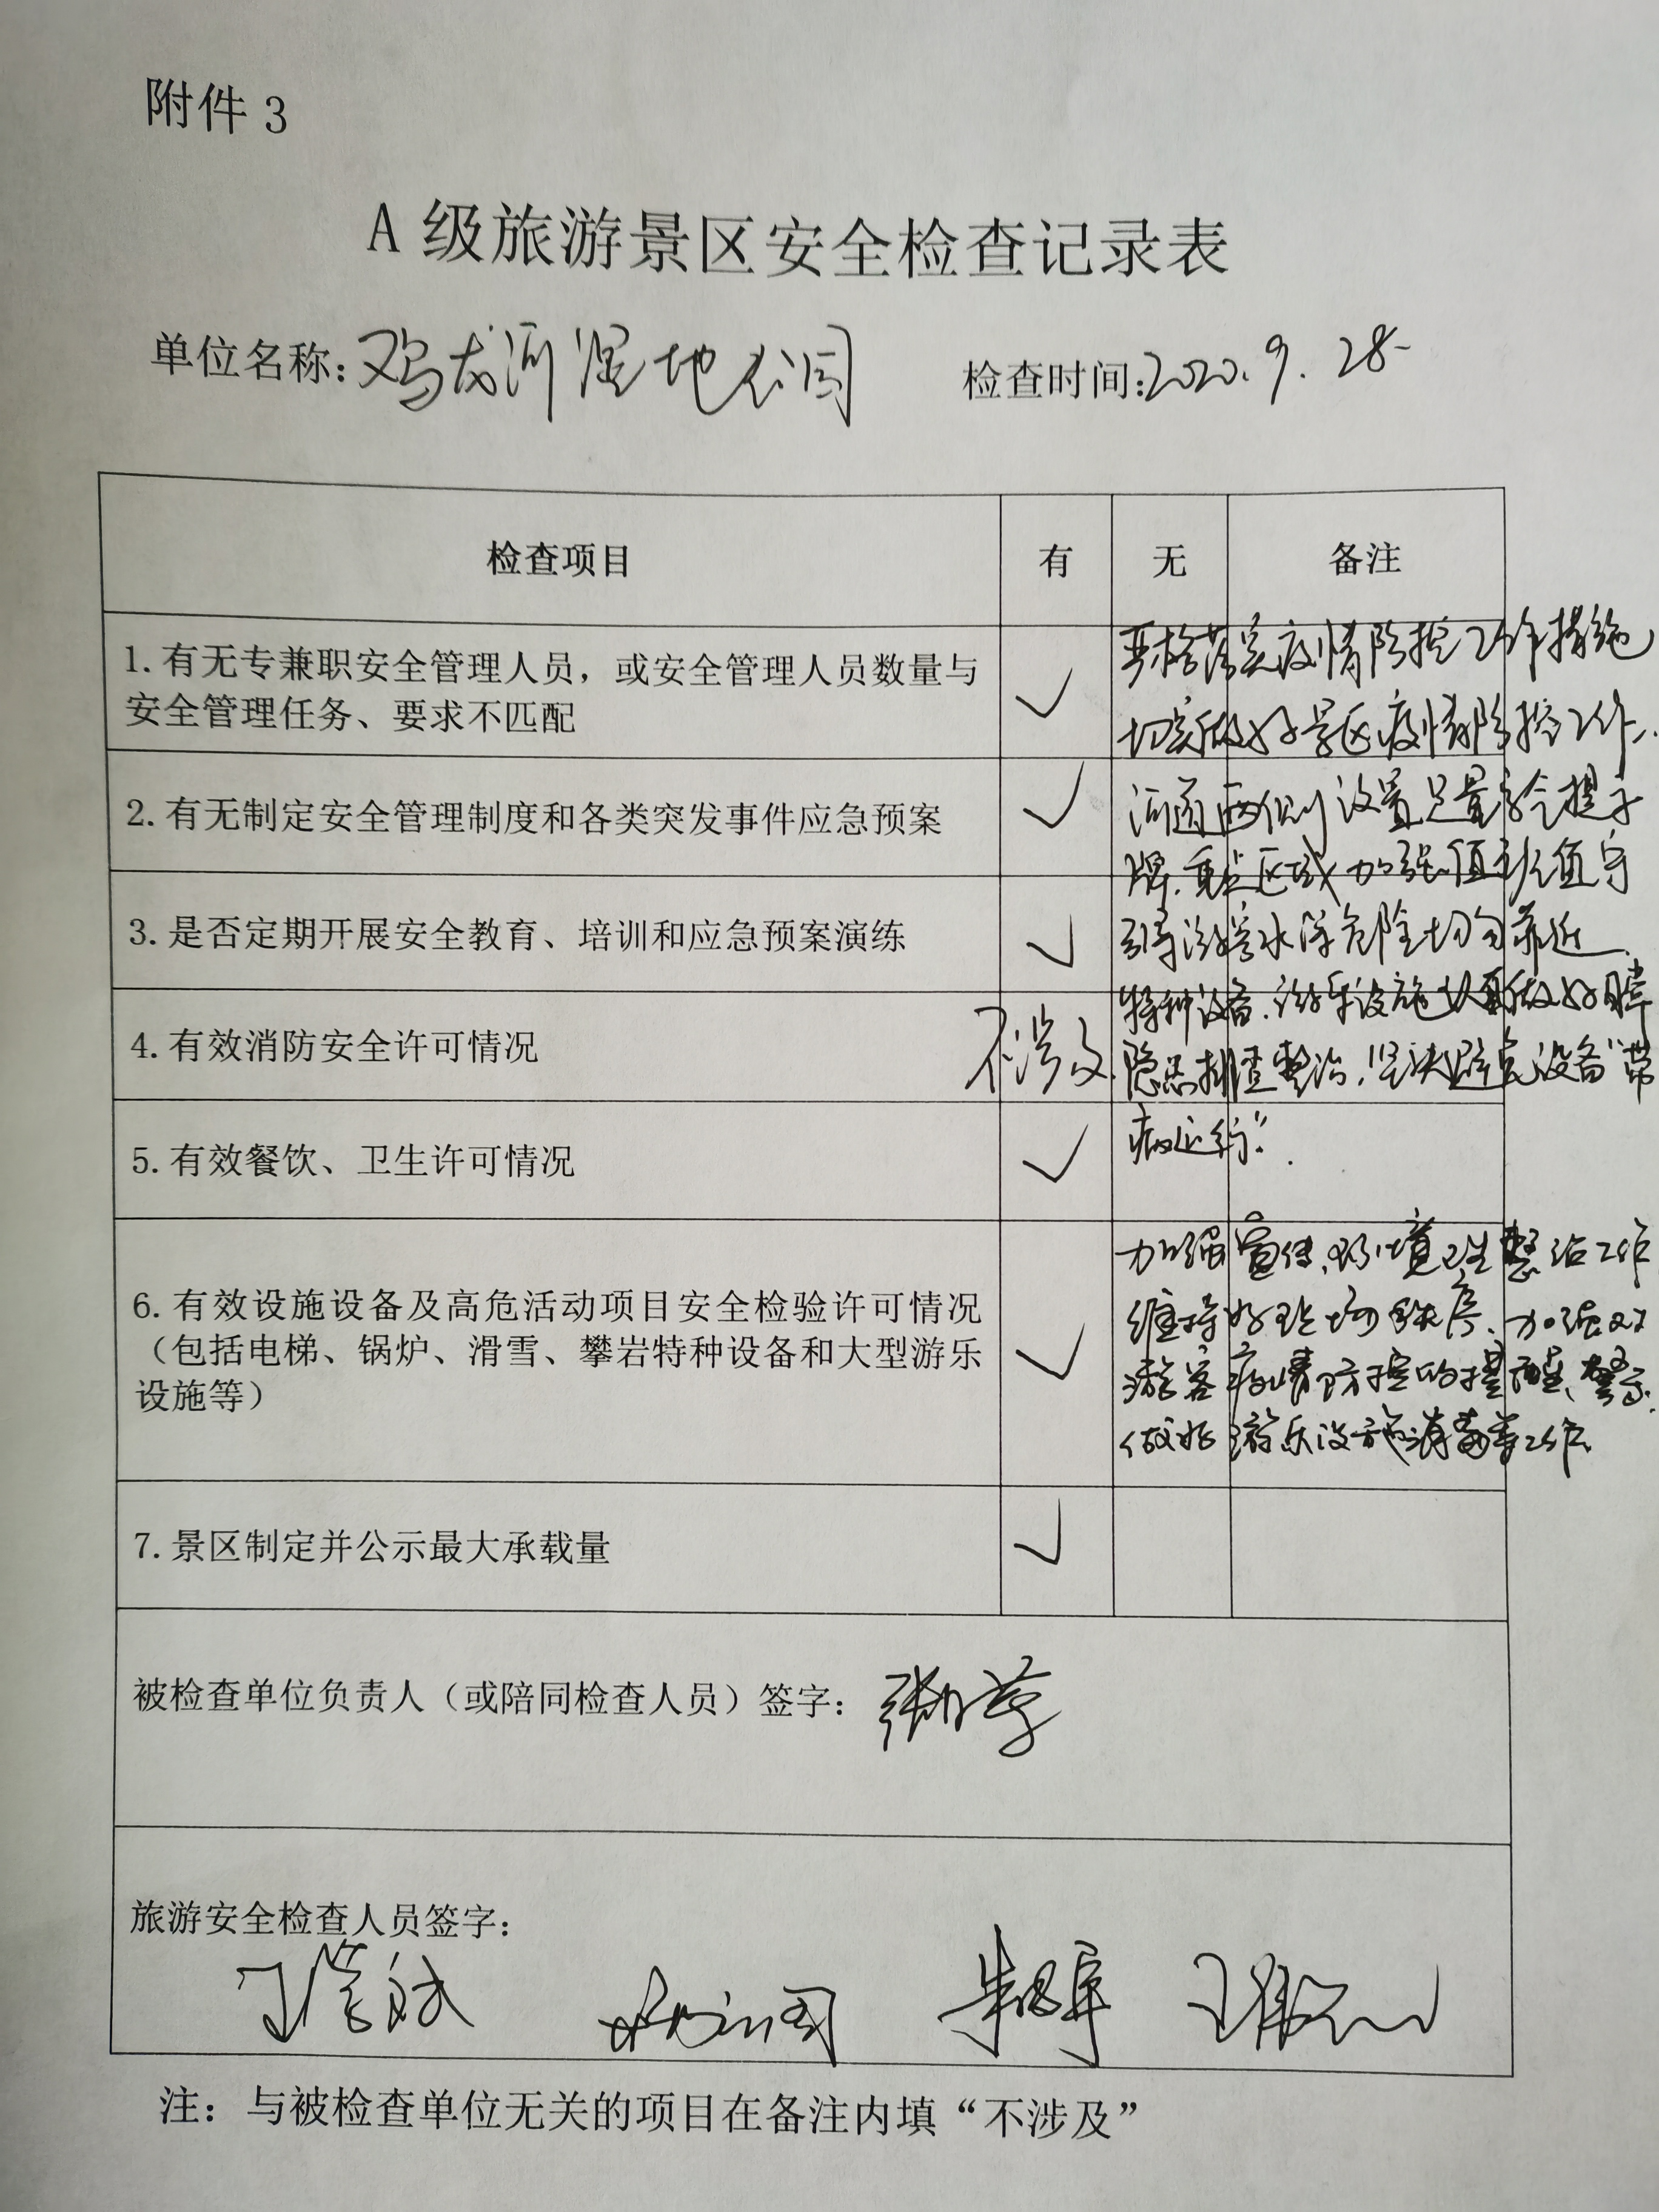 附件 3
A 级旅游景区安全检查记录表
单位名称：鸡龙河湿地公园 检查时间：2020.9.28
检查项目 有 无 备注
1. 有无专兼职安全管理人员，或安全管理人员数量与
安全管理任务、要求不匹配 ✓
严格落实疫情防控工作措施
切实做好景区疫情防控工作.
2. 有无制定安全管理制度和各类突发事件应急预案 ✓
河道两侧设置足量安全提示
牌.重点区域加强值班值守
3. 是否定期开展安全教育、培训和应急预案演练 ✓
引导游客水深危险切勿靠近
4. 有效消防安全许可情况 不涉及
特种设备.游乐设施认真做好
隐患排查整治.坚决避免设备“带
5. 有效餐饮、卫生许可情况 ✓
病运行”.
6. 有效设施设备及高危活动项目安全检验许可情况
（包括电梯、锅炉、滑雪、攀岩特种设备和大型游乐
设施等） ✓
加强宣传、环境卫生整治工作
维持好现场秩序、加强对
游客疫情防控的提醒、警示.
做好游乐设施消毒等工作.
7. 景区制定并公示最大承载量 ✓
被检查单位负责人（或陪同检查人员）签字：
旅游安全检查人员签字：
注：与被检查单位无关的项目在备注内填“不涉及”